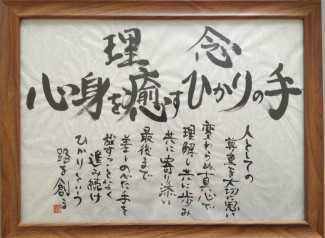 理念
心身を癒すひかりの手
人としての
尊重を大切に思い
変わらぬ真心で
理解し共に歩み
共に寄り添い
最後まで
差しのべた手を
放すことなく
進み続け
ひかりという
路を創る